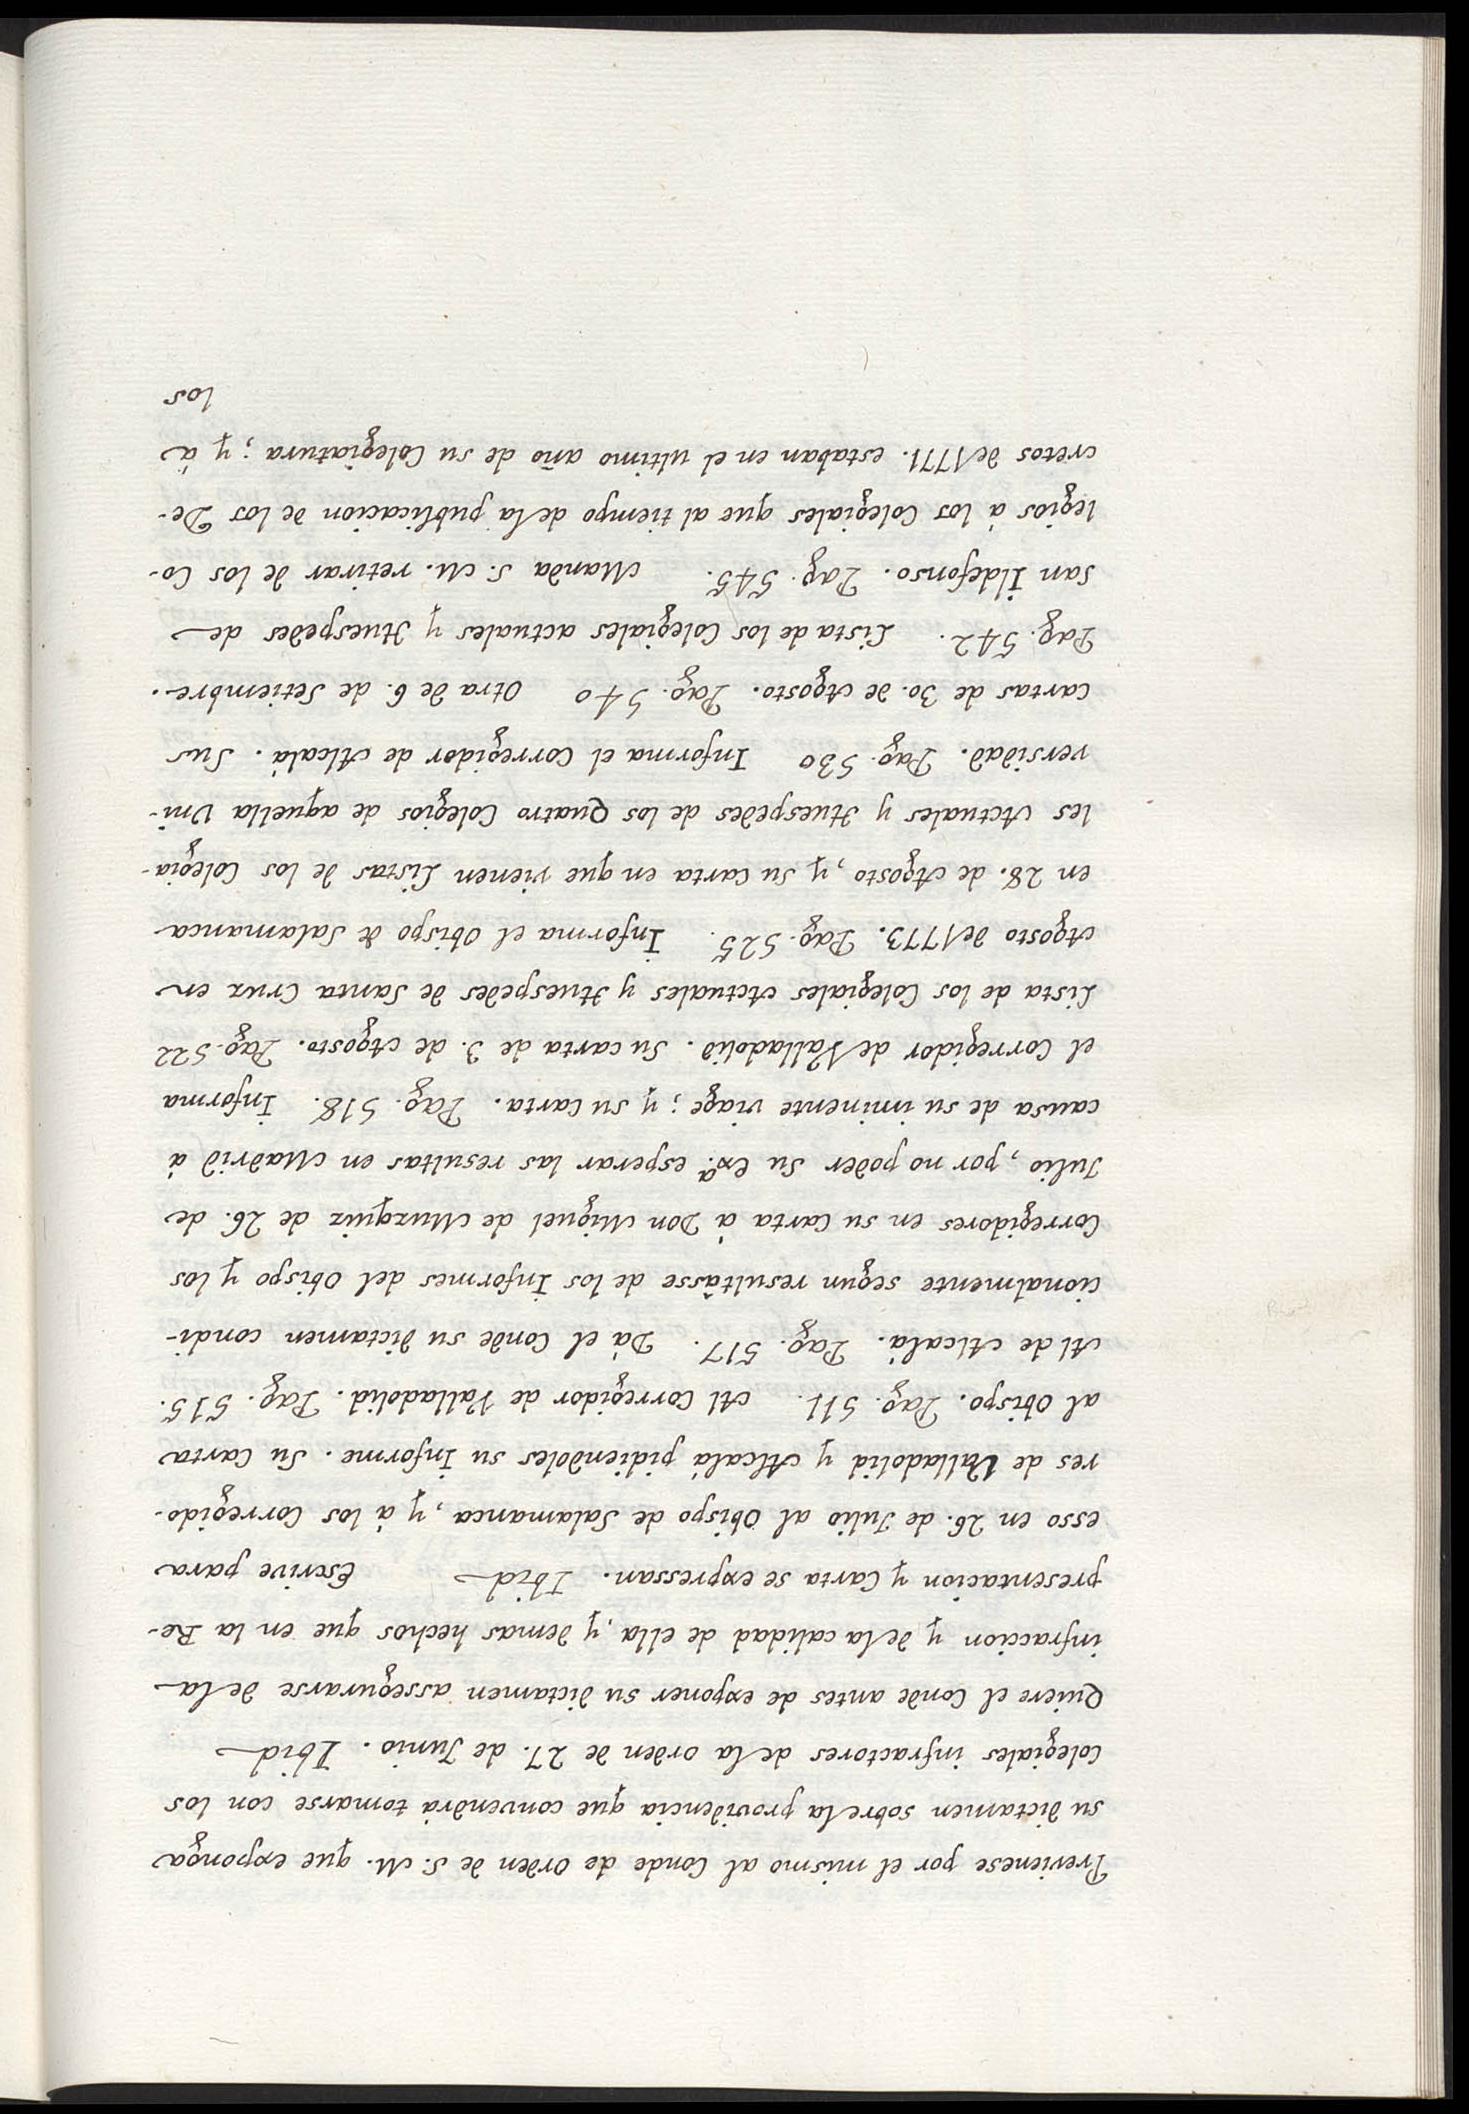 Previenese por el mismo al Conde de Orden de S. M. que exponga
su dictamen sobre la providencia que convendrà tomarse con los
Colegiales infractores de la orden de 27. de Junio. Ibid
Quiere el Conde antes de exponer su dictamen assegurarse de la
infraccion y de la calidad de ella, y demas hechos que en la Re-
presentacion y Carta se expressan. Ibid Escrive para
esso en 26. de Julio al Obispo de Salamanca, y à los Corregido-
res de Valladolid y Alcalá pidiendoles su Informe. Su Carta
al Obispo. Pag. 511. Al Corregidor de Valladolid. Pag. 515.
Al de Alcalá. Pag. 517. Dà el Conde su dictamen condi-
cionalmente segun resultàsse de los Informes del Obispo y los
Corregidores en su Carta à Don Miguel de Muzquiz de 26. de
Julio, por no poder Su Exª. esperar las resultas en Madrid à
causa de su iminente viage; y su Carta. Pag. 518. Informa
el Corregidor de Valladolid. Su carta de 3. de Agosto. Pag. 522
Lista de los Colegiales Actuales y Huespedes de Santa Cruz en
Agosto de 1773. Pag. 525. Informa el Obispo de Salamanca
en 28. de Agosto, y su carta en que vienen Listas de los Colegia-
les Actuales y Huespedes de los Quatro Colegios de aquella Uni-
versidad. Pag. 530 Informa el Corregidor de Alcalá. Sus
cartas de 30. de Agosto. Pag. 540 Otra de 6. de Setiembre.
Pag. 542. Lista de los Colegiales actuales y Huespedes de
San Ildefonso. Pag. 545. Manda S. M. retirar de los Co-
legios à los Colegiales que al tiempo de la publicacion de los De-
cretos de 1771. estaban en el ultimo año de su Colegiatura; y à
los